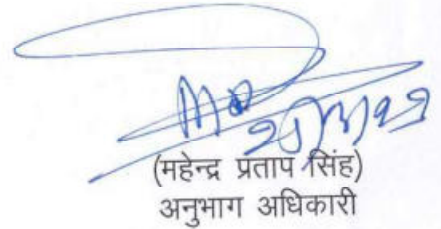 (महेन्द्र प्रताप सिंह)
अनुभाग अधिकारी